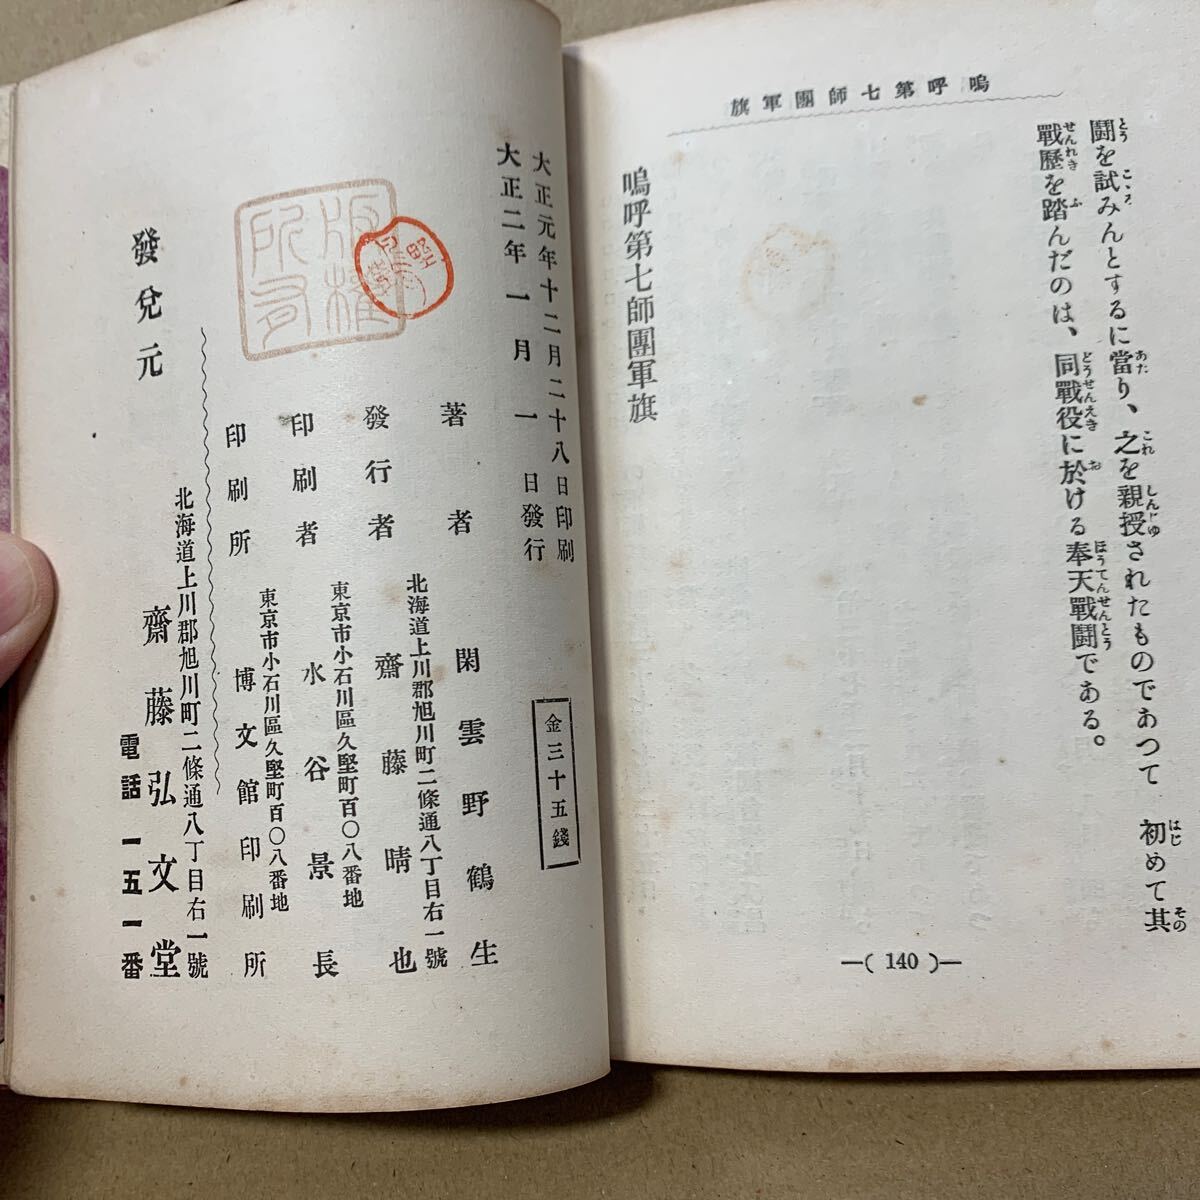 旗軍團師七第呼嗚
鬪を試みんとするに當り、之を親授されたものであつて 初めて其
とう こゝろ あた これ しんじゆ はじ その
戰歷を踏んだのは、同戰役に於ける奉天戰鬪である。
せんれき ふ どうせんえき お ほうてんせんとう
嗚呼第七師團軍旗
—( 140 )—
大正元年十二月二十八日印刷
大正二年一月一日發行
金三十五錢
著者 閑雲野鶴生
北海道上川郡旭川町二條通八丁目右一號
發行者 齋藤晴也
東京市小石川區久堅町百〇八番地
印刷者 水谷景長
東京市小石川區久堅町百〇八番地
印刷所 博文館印刷所
北海道上川郡旭川町二條通八丁目右一號
發兌元 齋藤弘文堂
電話一五一番
版權所有